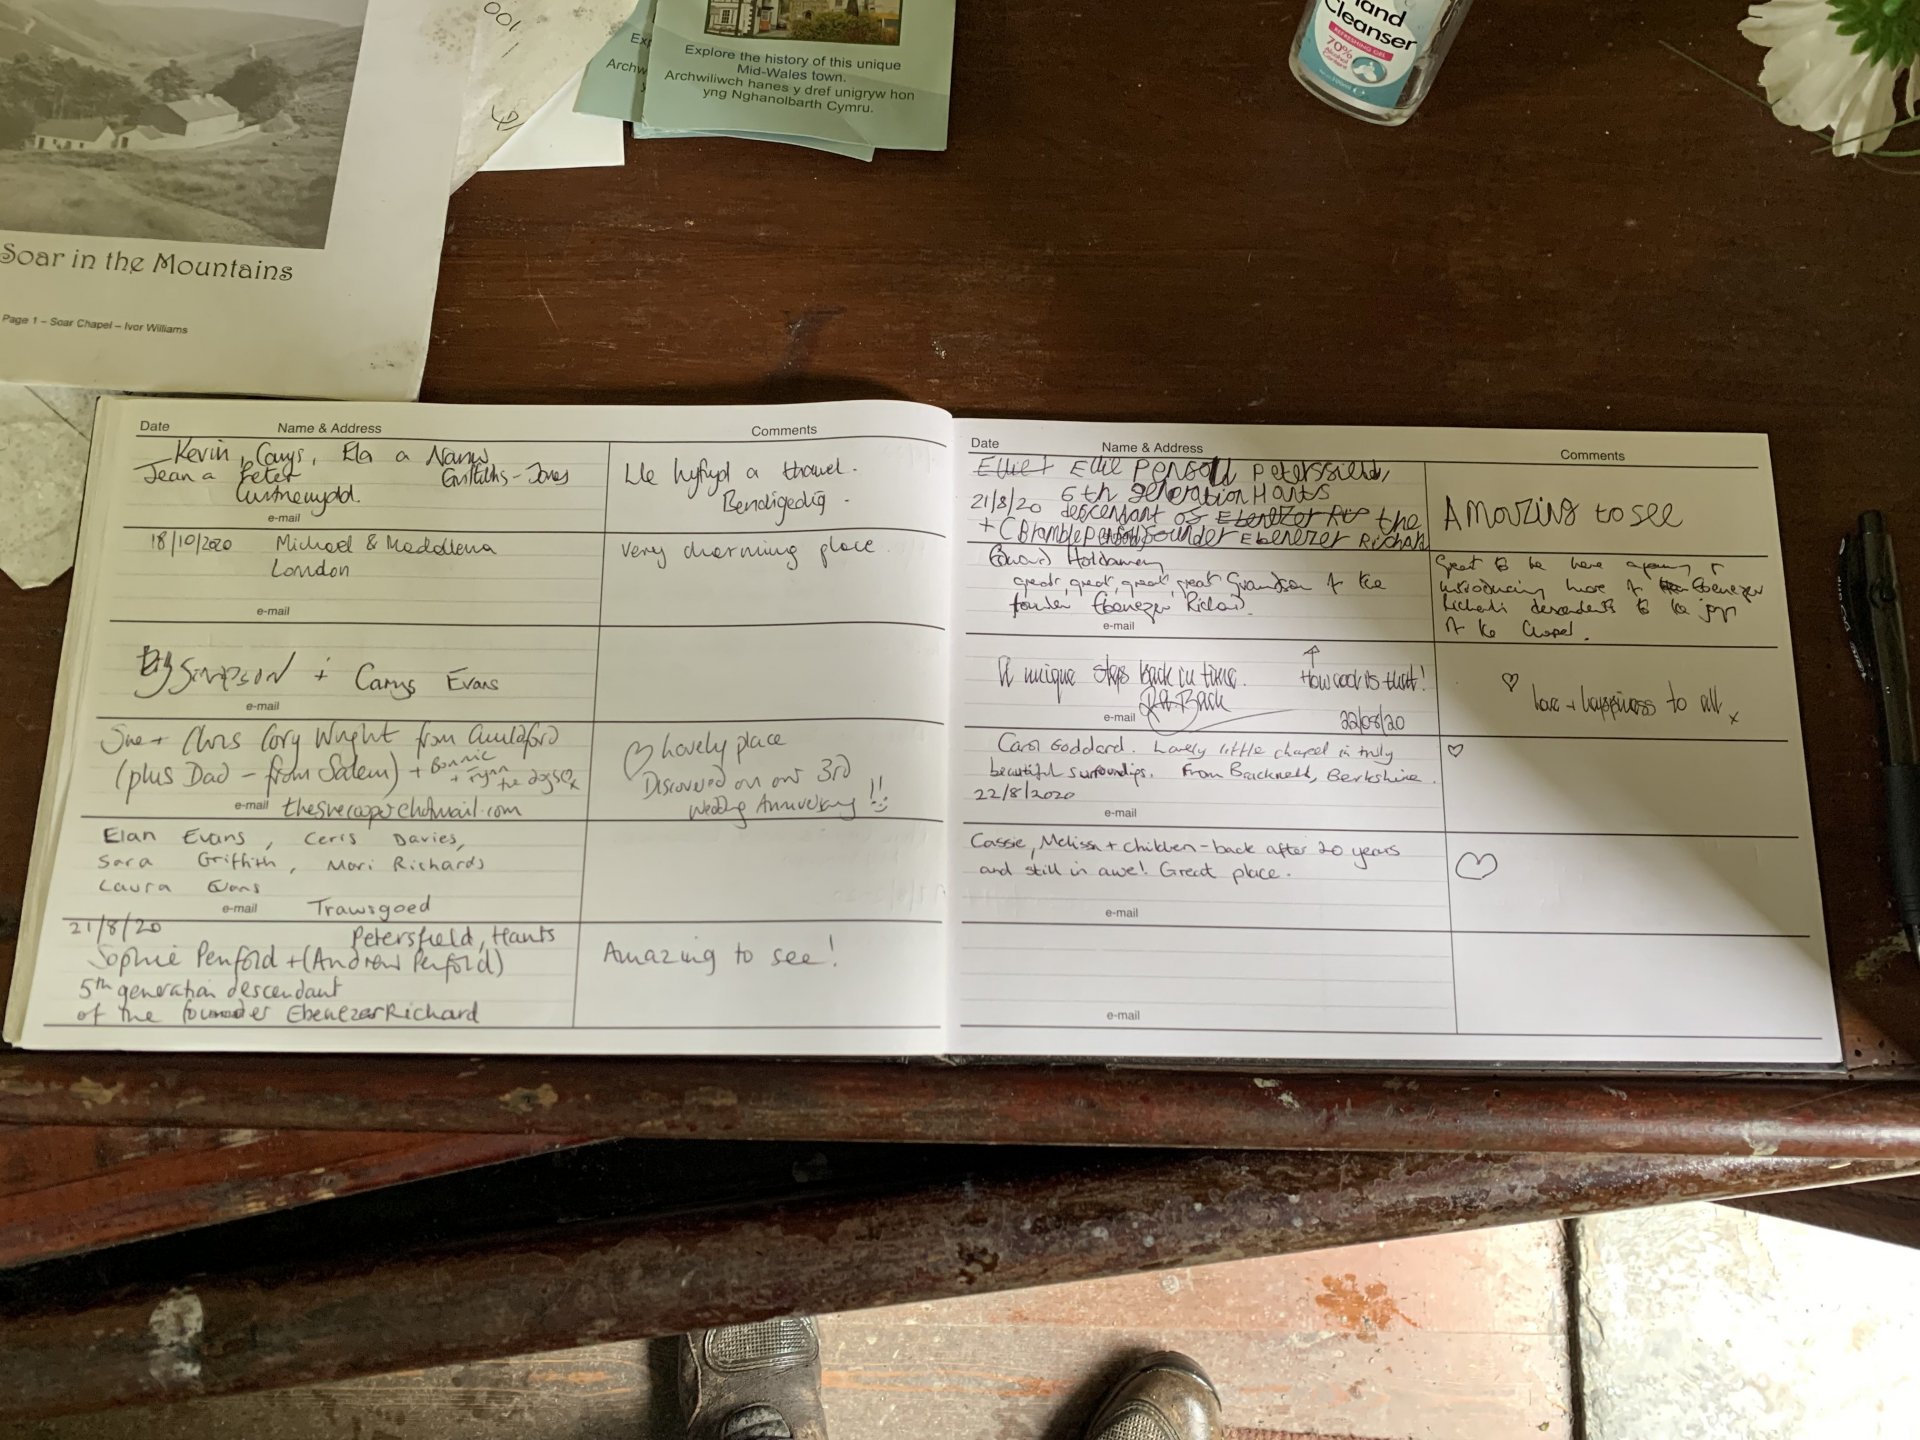 Soar in the Mountains
Page 1 – Soar Chapel – Ivor Williams
001
Explore the history of this unique
Mid-Wales town.
Archwiliwch hanes y dref unigryw hon
yng Nghanolbarth Cymru.
Exp
Archw
y
Hand
Cleanser
REFRESHING GEL
70%
Alcohol
Content
Date Name & Address Comments
Kevin, Carys, Ela a Nanw
Jean a Peter Griffiths-Jones
e-mail
Lle hyfryd a thawel.
Bendigedig.
18/10/2020 Michael & Maddalena
London
e-mail
very charming place
Simpson + Carys Evans
e-mail
Sue + Chris Cory Wright from Guildford
(plus Dad - from Salem) + Bonnie
+ the dogs x
e-mail
♡ Lovely place
Discovered on our 3rd
Wedding Anniversary !!
Elan Evans, Ceris Davies,
Sara Griffith, Mari Richards
Laura Evans
e-mail Trawsgoed
21/8/20 Petersfield, Hants
Sophie Penfold + (Andrew Penfold)
5th generation descendant
of the founder Ebenezer Richard
Amazing to see!
Date Name & Address Comments
Ellie + Ellie Penfold Petersfield,
21/8/20 6th generation Hants
descendant of Ebenezer Ris the
+ (Bramble Penfold) founder Ebenezer Richard
Amazing to see
Edward Holdaway
great, great, great, great Grandson of the
founder Ebenezer Richard.
e-mail
Great to be here again &
introducing more of Ebenezer
Richard's descendents to the joys
of the Chapel.
A unique steps back in time. ↑ How cool is that!
e-mail 22/08/20
♡ love + happiness to all x
Carol Goddard. Lovely little chapel in truly
beautiful surroundings. From Bracknell, Berkshire.
22/8/2020
e-mail
♡
Cassie, Melissa + children - back after 20 years
and still in awe! Great place.
e-mail
♡
e-mail